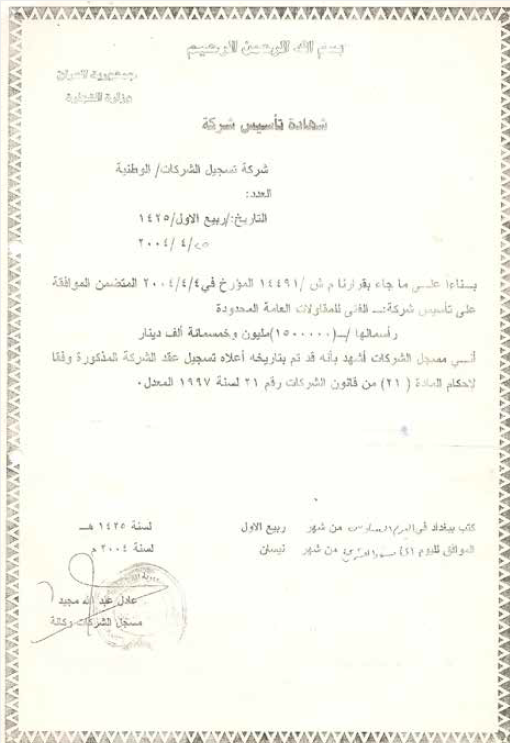 بسم الله الرحمن الرحيم
جمهورية العراق
وزارة التجارة
شهادة تأسيس شركة
شركة تسجيل الشركات/ الوطنية
العدد:
التاريخ:/ربيع الاول/١٤٢٥
٢٠٠٤/٤/٢٥
بناءا على ما جاء بقرارنا م ش /١٤٤٩١ المؤرخ في ٢٠٠٤/٤/٤ المتضمن الموافقة
على تأسيس شركة:ـ الفلق للمقاولات العامة المحدودة
رأسمالها /ـ(١٥٠٠٠٠٠)مليون وخمسمائة ألف دينار
أنسي مسجل الشركات أشهد بأنه قد تم بتاريخه أعلاه تسجيل عقد الشركة المذكورة وفقا
لاحكام المادة (٢١) من قانون الشركات رقم ٢١ لسنة ١٩٩٧ المعدل٠
كتب ببغداد في اليوم السادس من شهر ربيع الاول لسنة ١٤٢٥ هــ
الموافق لليوم من شهر نيسان لسنة ٢٠٠٤ م
عادل عبد الله مجيد
مسجل الشركات وكالة